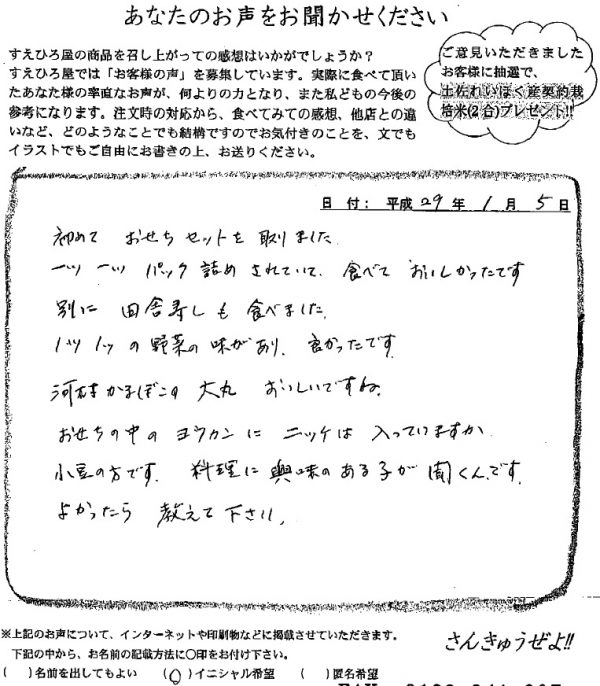 あなたのお声をお聞かせください
すえひろ屋の商品を召し上がっての感想はいかがでしょうか？
すえひろ屋では「お客様の声」を募集しています。実際に食べて頂い
たあなた様の率直なお声が、何よりの力となり、また私どもの今後の
参考になります。注文時の対応から、食べてみての感想、他店との違
いなど、どのようなことでも結構ですのでお気付きのことを、文でも
イラストでもご自由にお書きの上、お送りください。
ご意見いただきました
お客様に抽選で、
土佐れいほく産契約栽
培米(2合)プレゼント!!
日 付： 平成 29 年 1 月 5 日
初めて おせち セットを 取りました
一ツ 一ツ パック 詰め されていて、食べて おいしかったです
別に 田舎寿し も 食べました
1ツ 1ツ の 野菜の 味があり、良かったです
河村かまぼこの 大丸 おいしいですね。
おせちの中の ヨウカン に ニッケは 入っていますか
小豆の方です。 料理に 興味の ある子が 聞くんです。
よかったら 教えて 下さい。
※上記のお声について、インターネットや印刷物などに掲載させていただきます。
下記の中から、お名前の記載方法に○印をお付け下さい。
( )名前を出してもよい (○)イニシャル希望 ( )匿名希望
さんきゅうぜよ!!